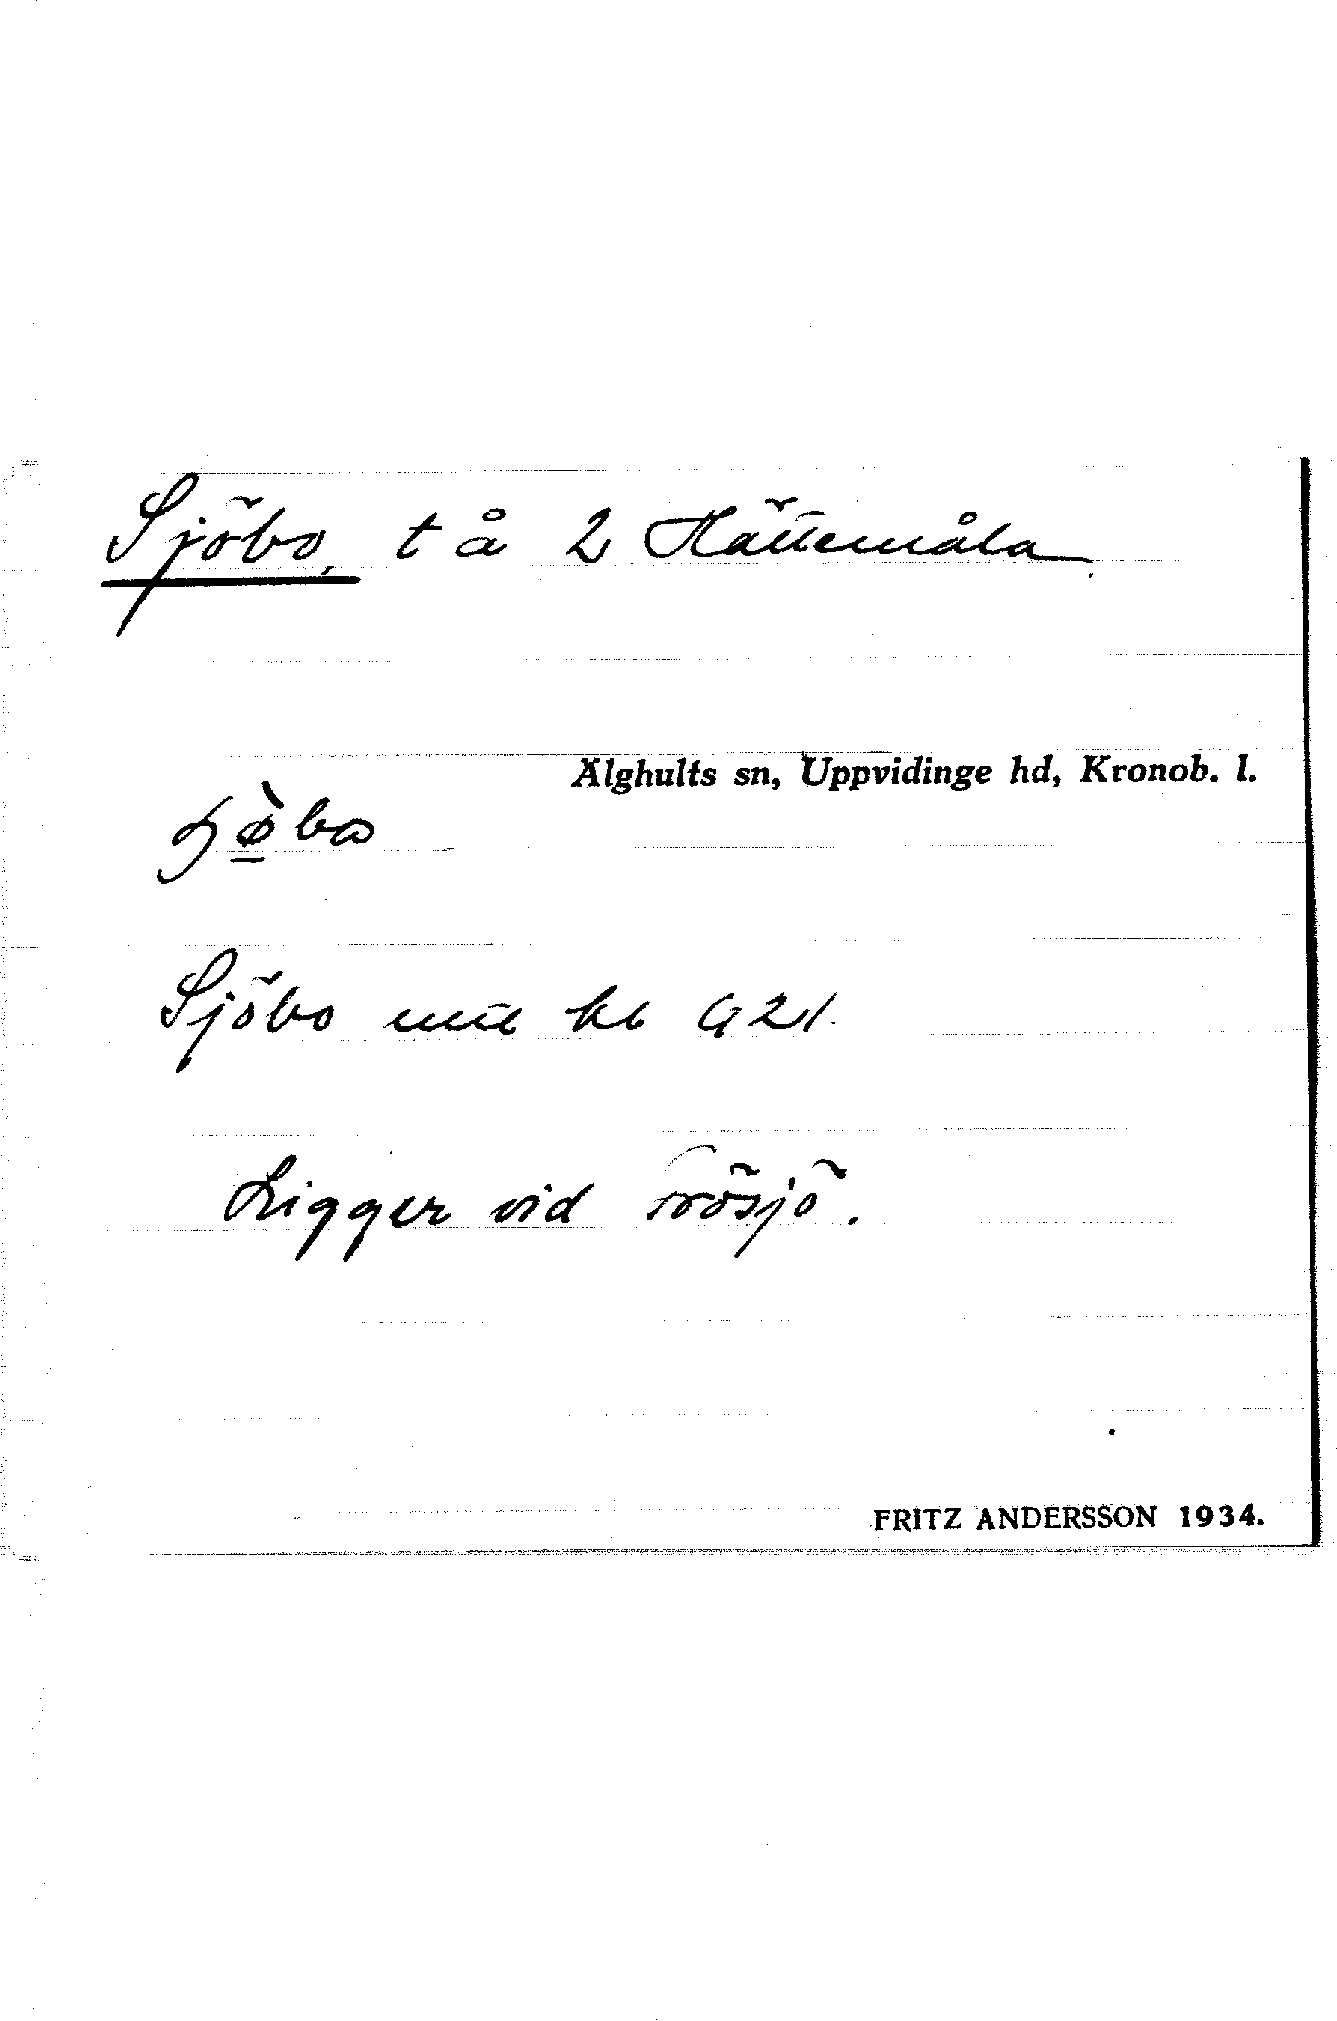 Sjöbo, t å 2 Hättemåla
Älghults sn, Uppvidinge hd, Kronob. l.
Sjöbo
Ligger vid Frösjö.
FRITZ ANDERSSON 1934.